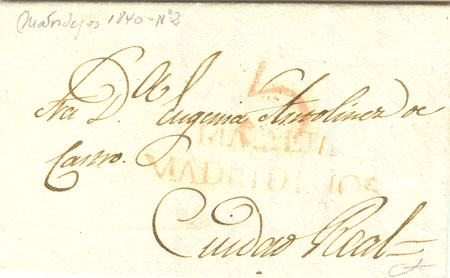 Madridejos 1840 - Nº 2
5
A la
Sra D.ª Eugenia Antolinez de
Castro.
MADRIDEJOS
Ciudad Real